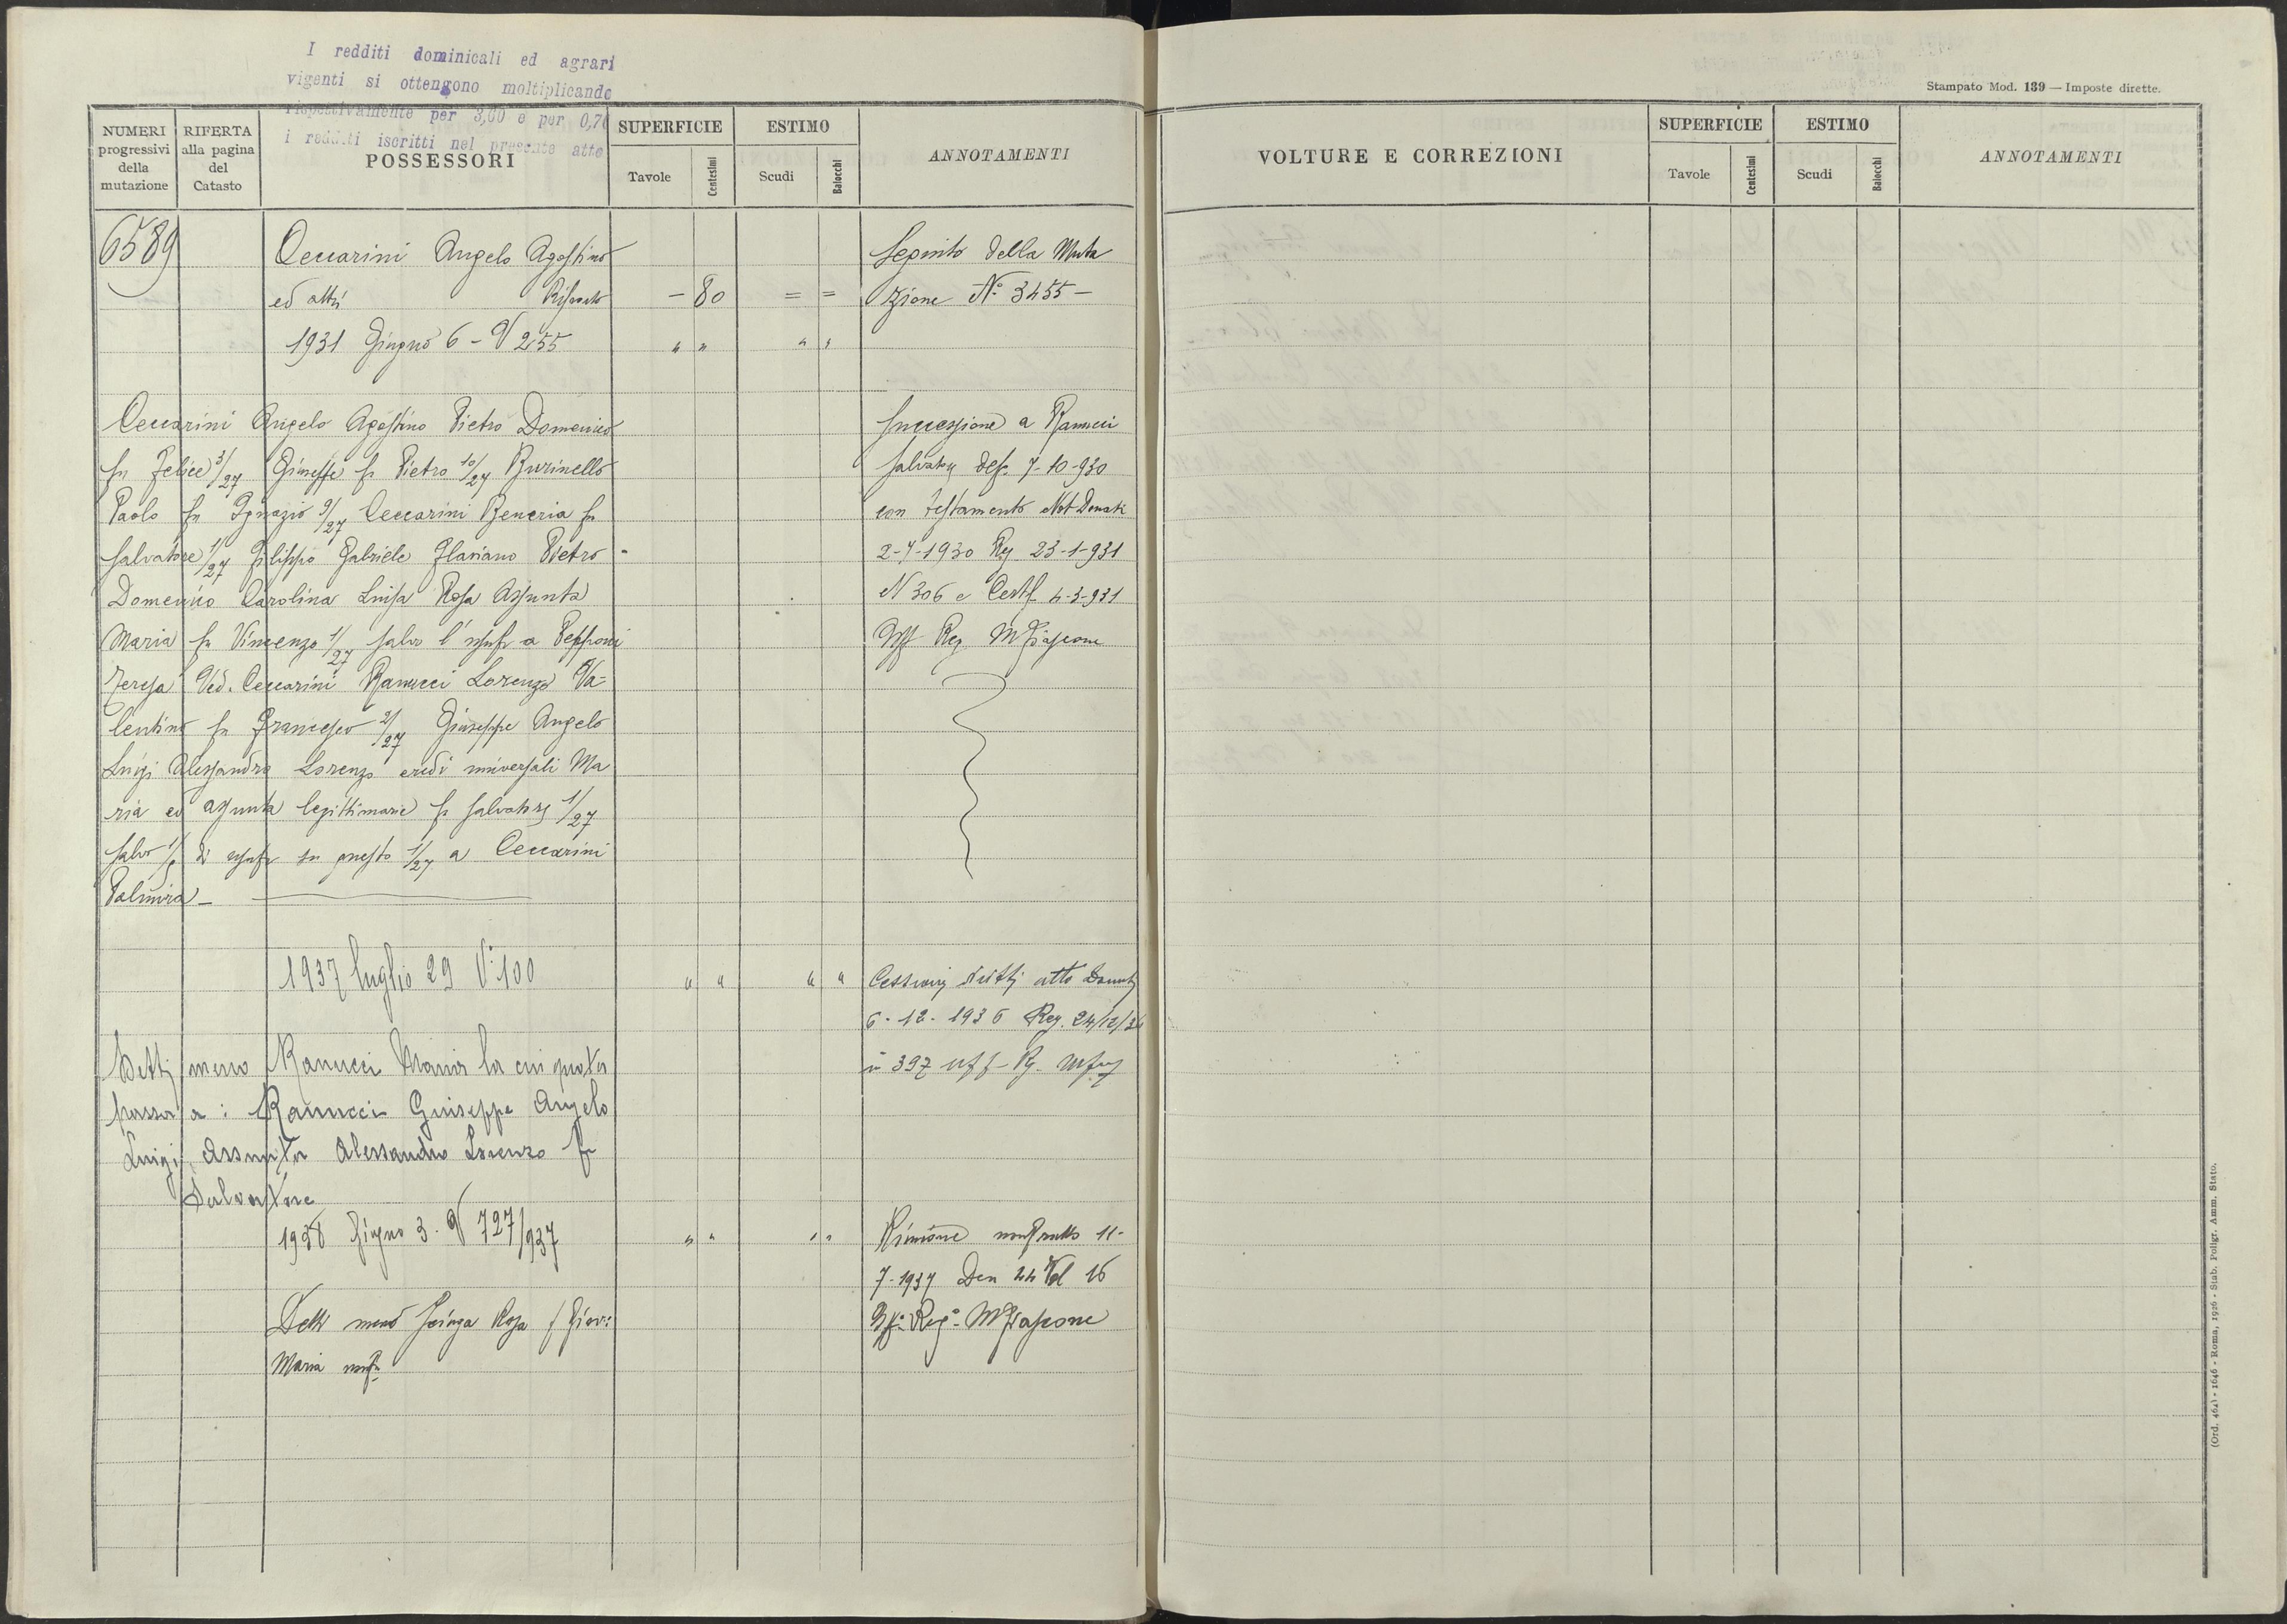 I redditi dominicali ed agrari
vigenti si ottengono moltiplicando
rispettivamente per 3,00 e per 0,70
i redditi iscritti nel presente atto
Stampato Mod. 139 — Imposte dirette.
NUMERI progressivi della mutazione
RIFERTA alla pagina del Catasto
POSSESSORI
SUPERFICIE
Tavole
Centesimi
ESTIMO
Scudi
Baiocchi
ANNOTAMENTI
VOLTURE E CORREZIONI
SUPERFICIE
Tavole
Centesimi
ESTIMO
Scudi
Baiocchi
ANNOTAMENTI
6589 Ceccarini Angelo Agostino Seguito della Muta
ed altri Riporto - 80 = = zione N° 3455 -
1931 Giugno 6 - V 255 " " " "
Ceccarini Angelo Agostino Pietro Domenico Successione a Ranucci
fu Felice 3/27 Giuseppe fu Pietro 10/27 Burinello Salvatore def. 7-10-930
Paolo fu Ignazio 9/27 Ceccarini Beneria fu con testamento Not Donati
Salvatore 1/27 Filippo Gabriele Flaviano Pietro 2-7-1930 Reg 23-1-931
Domenico Carolina Luisa Rosa Assunta N 306 e Certif 4-3-931
Maria fu Vincenzo 1/27 salvo l'usuf a Pepponi Uff Reg Mfiascone
Teresa Ved. Ceccarini Ranucci Lorenzo Va=
lentino fu Francesco 2/27 Giuseppe Angelo
Luigi Alessandro Lorenzo eredi universali Ma
ria ed Assunta legittimarie fu Salvatore 1/27
salvo di usuf su questo 1/27 a Ceccarini
Palmira -
1937 luglio 29 V. 100 " " " " Cessione diritti atto Donati
6-12-1936 Reg. 24/12/36
Detti meno Ranucci Maria la cui quota n 397 uff- Rg. Mfiag
passa a: Ranucci Giuseppe Angelo
Luigi, Assunta Alessandro Lorenzo fu
Salvatore
1938 Giugno 3. V 727/937 " " " " Riunione usufrutto 11-
7-1937 Den 44 Vol 16
Detti meno Rosa f Giov: Uff: Reg: Mfiascone
Maria usuf.
(Ord. 464) - 1646 - Roma, 1926 - Stab. Poligr. Amm. Stato.